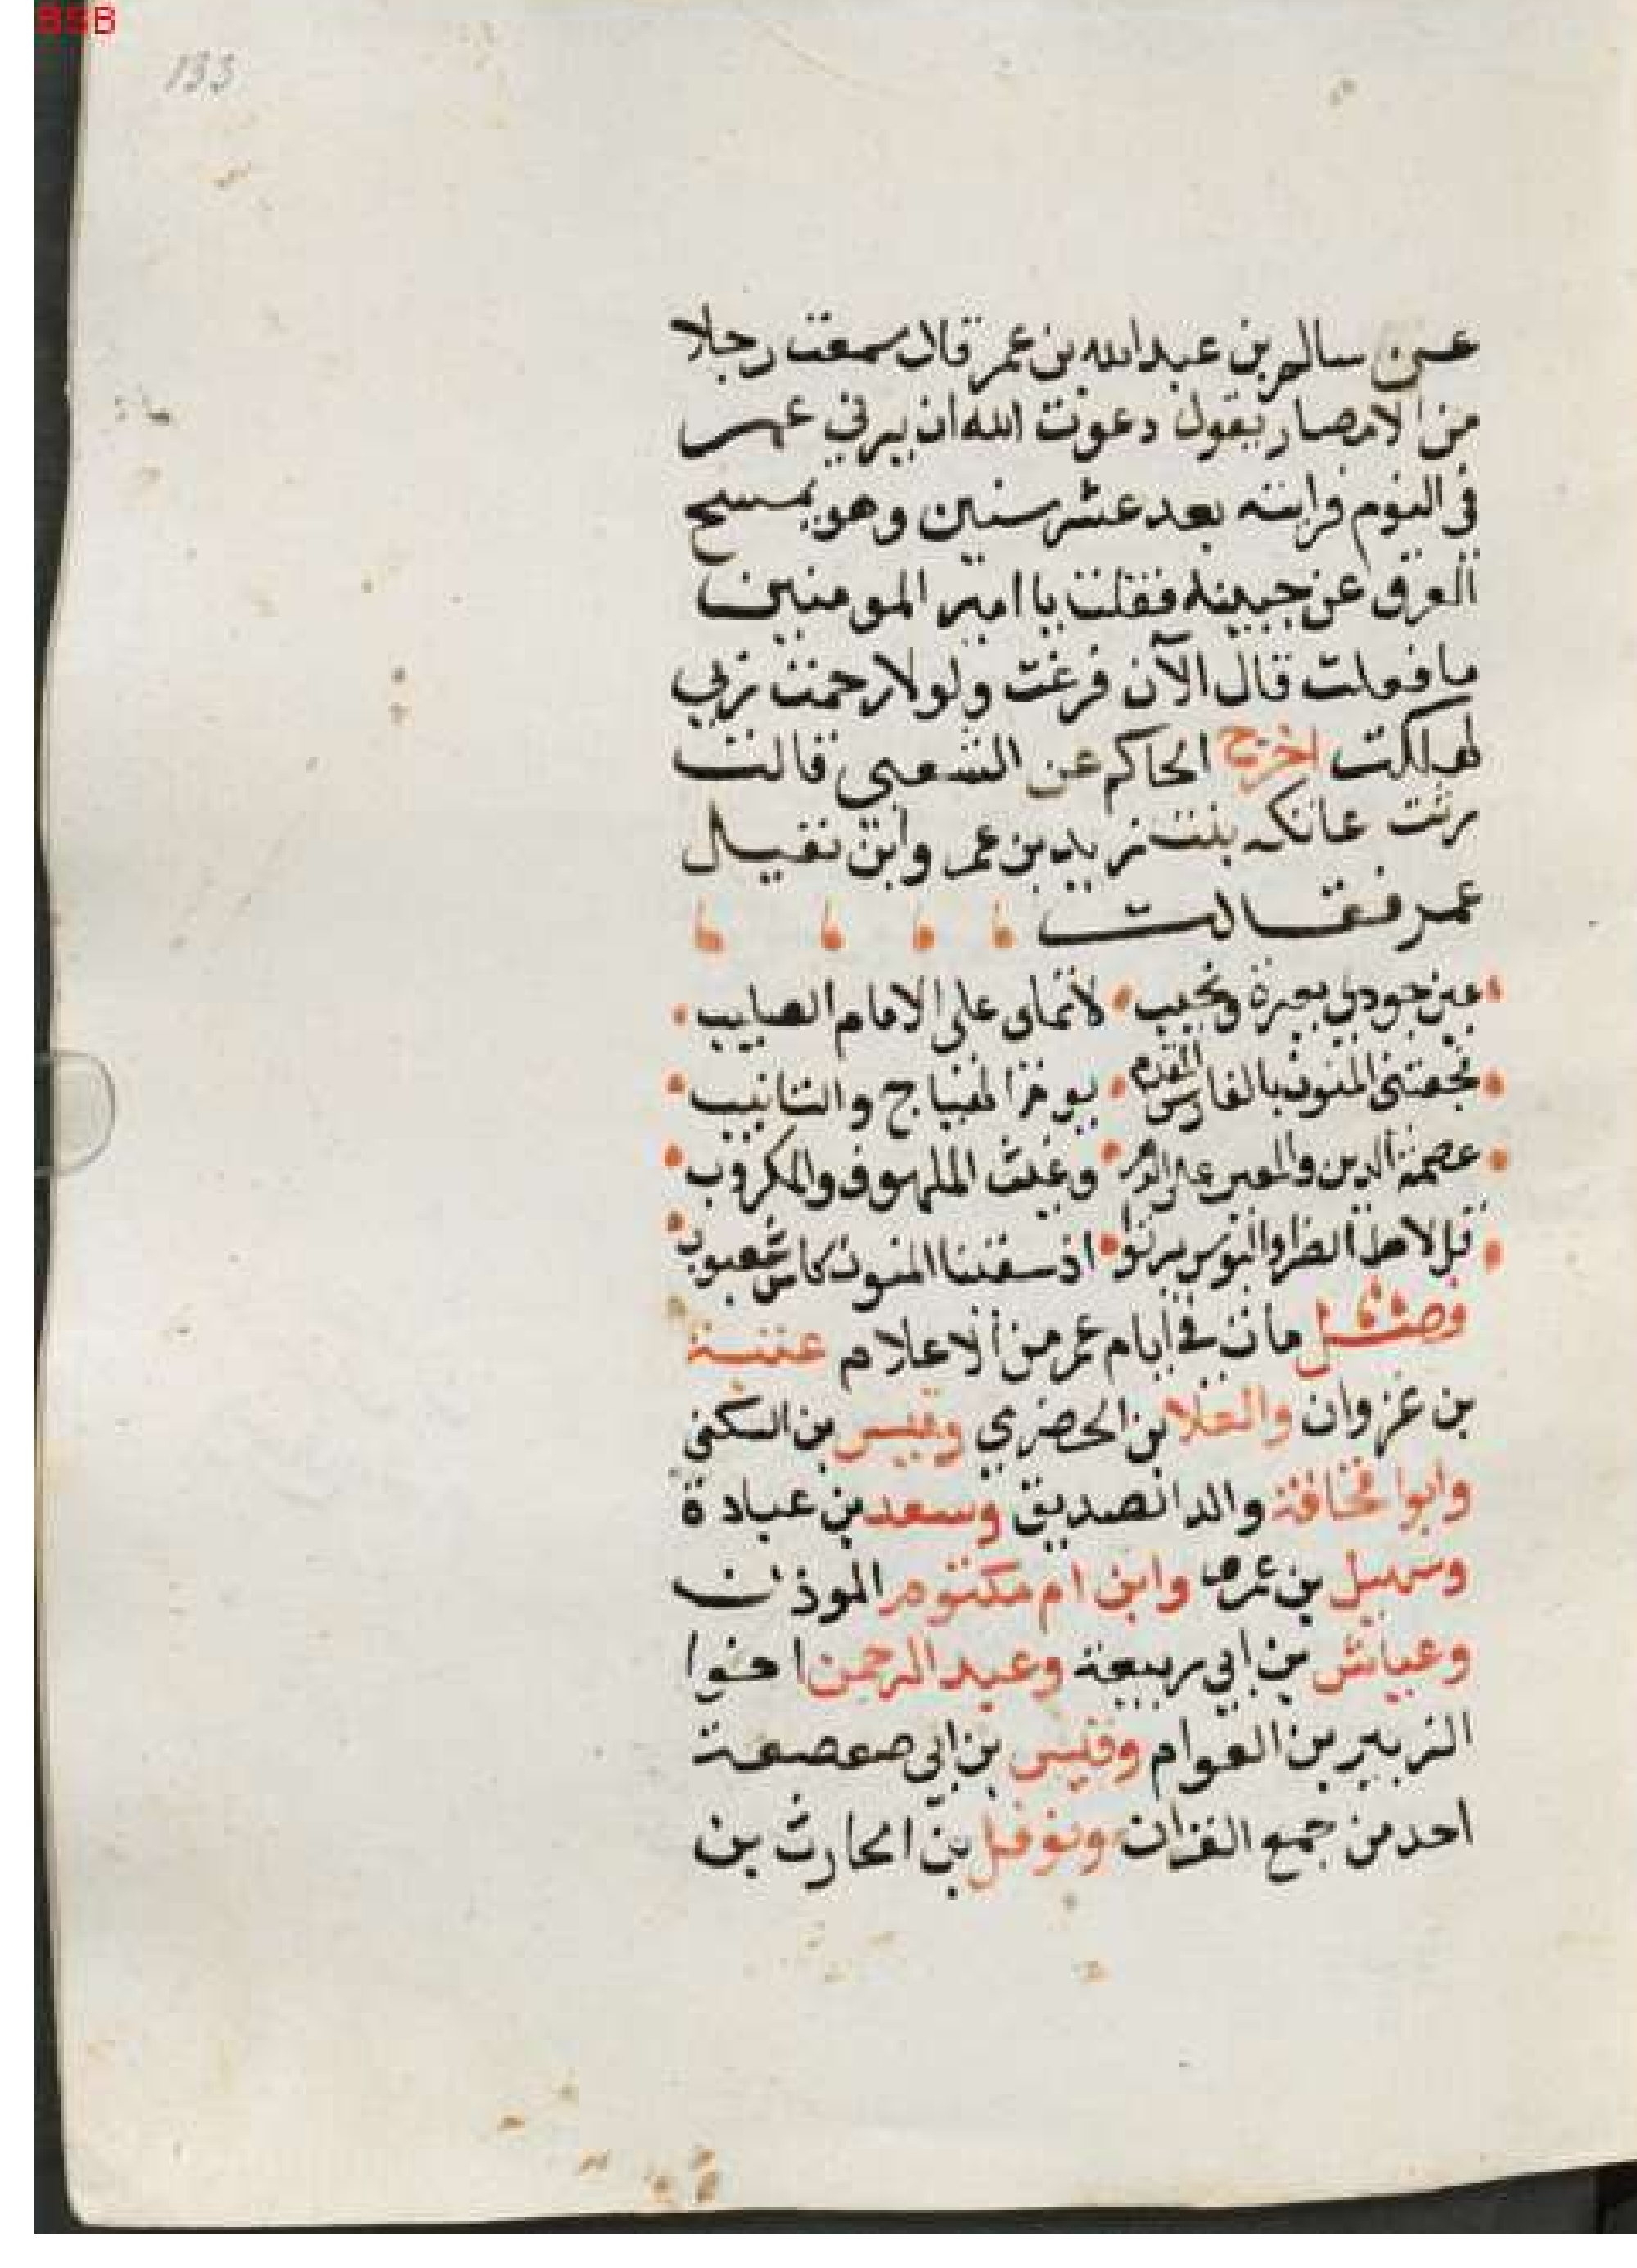 BSB
133
عن سالم بن عبد الله بن عمر قال سمعت رجلا
من الامصار يقول دعوت الله ان يرني عمر
في النوم فراىته بعد عشر سنين وهو يمسح
العرق عن جبينه فقلت يا امير المومنين
ما فعلت قال الآن فرغت ولولا رحمت ربي
لهلكت اخرج الحاكم عن الشعبي قالت
رثت عاتكه بنت زيد بن عمر وابن نفيل
عمر فقالت
عين جودي بعبرة ونحيب لا تملى على الامام الصليب
فجعتنى المنون بالفارس المقدم يوم الهياج والتانيب
عصمة الدين والمعين على الدهر وغيث الملهوف والمكروب
قل لاهل الضراء والبوس موتوا اذ سقتنا المنون كاس شعوب
فصل مات في أيام عمر من الاعلام عتبة
بن غزوان والعلا بن الحضري وقيس بن السكنى
وابوا قحافة والد الصديق وسعد بن عبادة
وسهيل بن عمرو وابن ام مكتوم الموذن
وعياش بن ابي ربيعة وعبد الرحمن اخوا
الزبير بن العوام وقيس بن ابي صعصعة
احد من جمع القران ونوفل بن الحارث بن